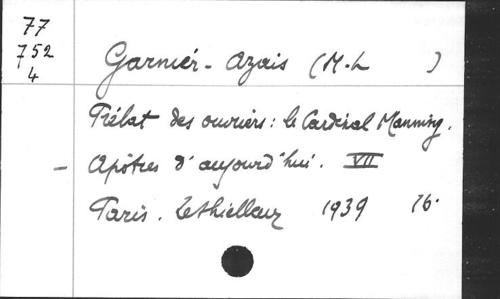 77
752
4
Garnier - Azais (M.L )
Prélat des ouvriers : le Cardinal Manning.
- Apôtres d'aujourd'hui. VII
Paris. Lethielleux 1939 16.